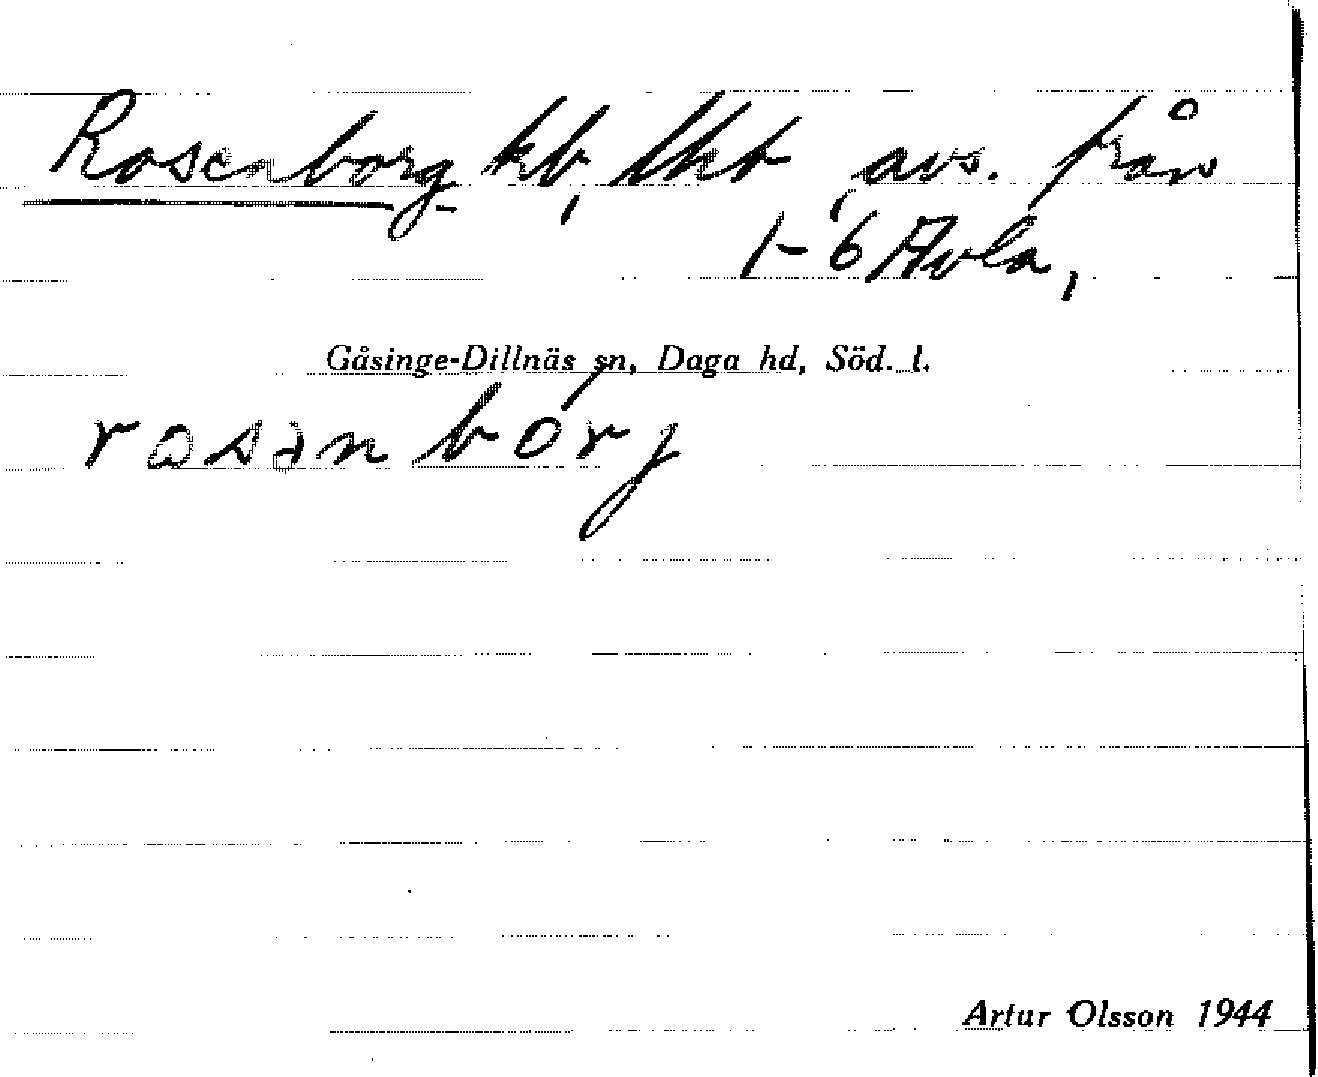 Rosenborg kb, lht, avs. från
1-6 Avla,
Gåsinge-Dillnäs sn, Daga hd, Söd. l.
rosənbórj
Artur Olsson 1944